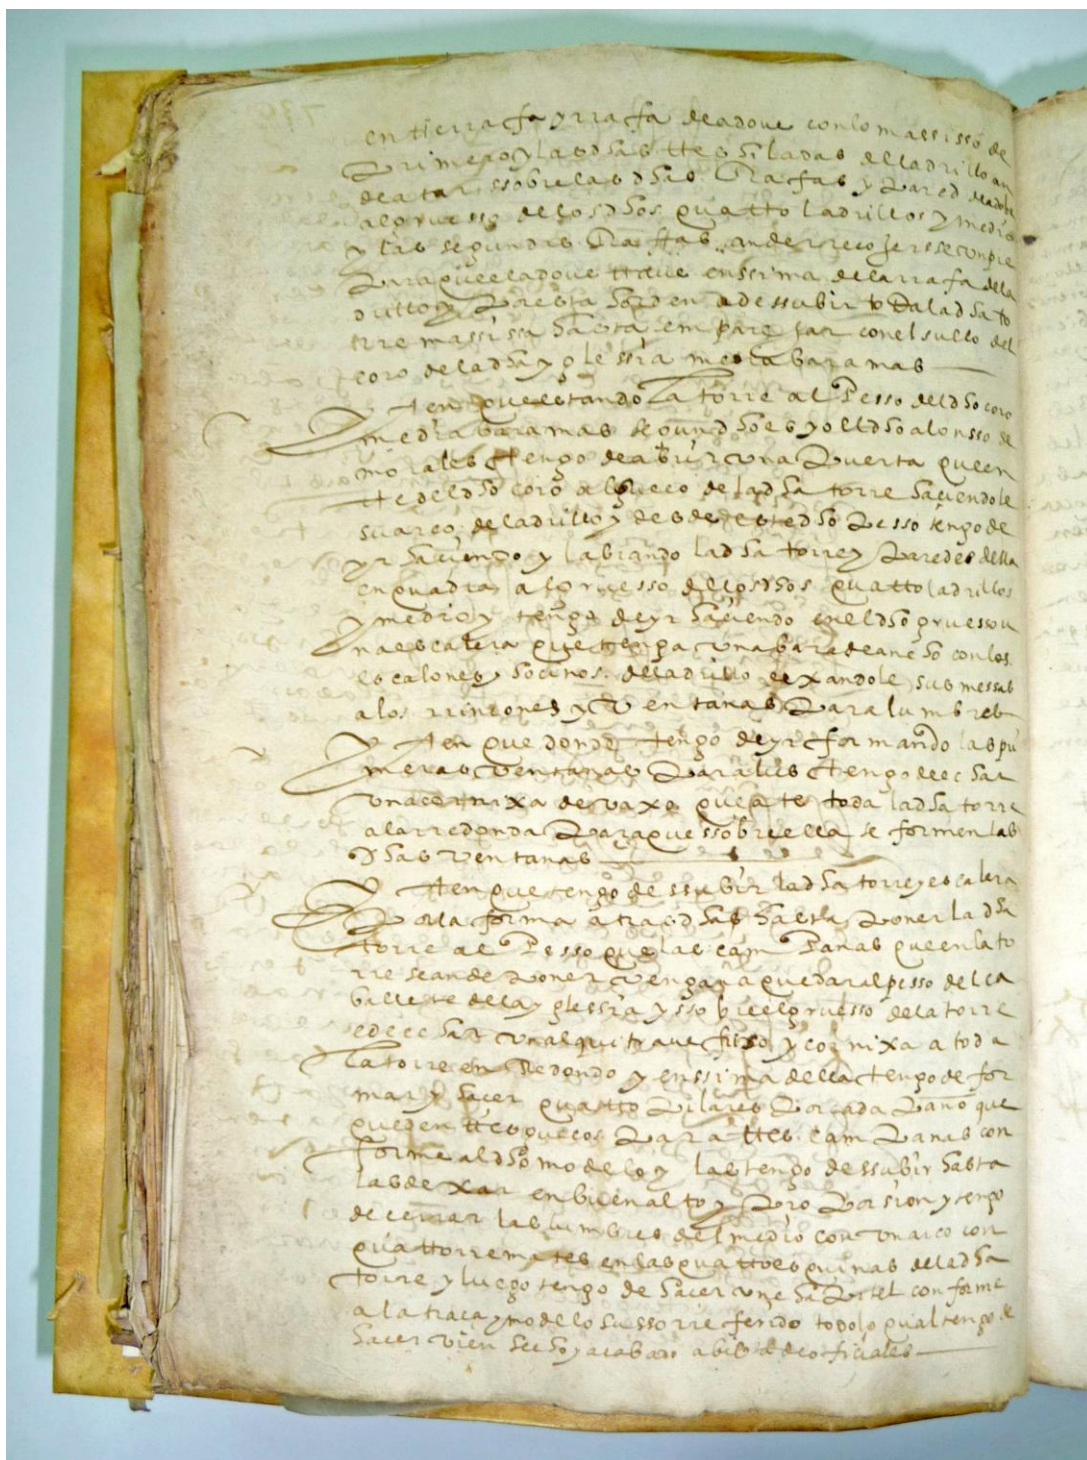 entre rrafa y rrafa de adove con lo massisso de
primero y las dhas tres siladas de ladrillo an
de atar ssobre las dhas Rafas y pared de adobe
al gruesso de los dhos quatto ladrillos y medio
y las segundas Raffas an de rrecojersse un pie
para que el adove trave enssima de la rrafa de la
drillo y por esta horden a de ssubir toda la dha to
rre massissa hasta emparejar con el suelo del
coro de la dha yglessia media bara mas
Yten que estando la torre al Pesso del dho coro
media bara mas segun dho es yo el dho alonsso de
morales tengo de abrir una puerta que en
tre del dho coro al gueco de la dha torre haciendole
su arco de ladrillo y desde este dho pesso tengo de
yr haciendo y labrando la dha torre y paredes della
en quadra al gruesso de los dhos quatto ladrillos
y medio y tengo de yr haciendo en el dho gruesso u
na escalera que tenga una bara de ancho con los
escalones y bocinos de ladrillo dexandole sus messas
a los rrincones y ventanas para lumbres
Yten que donde tengo de yr formando las pri
meras ventanas para lus tengo de echar
una cornixa de vaxo que ate toda la dha torre
a la rredonda para que ssobre ella se formen las
dhas ventanas
Yten que tengo de ssubir la dha torre y escalera
por la forma atras dhas hasta poner la dha
torre al Pesso que las cam Panas que en la to
rre se an de poner vengan a quedar al pesso del ca
ballete de la yglessia y ssobre el gruesso de la torre
e de echar un alquitrave friso y cornixa a toda
la torre en Redondo y enssima della tengo de for
mar y hacer quatto pilares por cada paño que
queden tres guecos para tres campanas con
forme al dho modelo y las tengo de ssubir hasta
las dexar en buen alto y proporsion y tengo
de cerrar las lumbres del medio con un arco con
quatto rremates en las quatto esquinas de la dha
torre y luego tengo de hacer un chapitel conforme
a la traca y modelo susso rreferido todo lo qual tengo de
hacer vien hecho y acabado a bista de oficiales